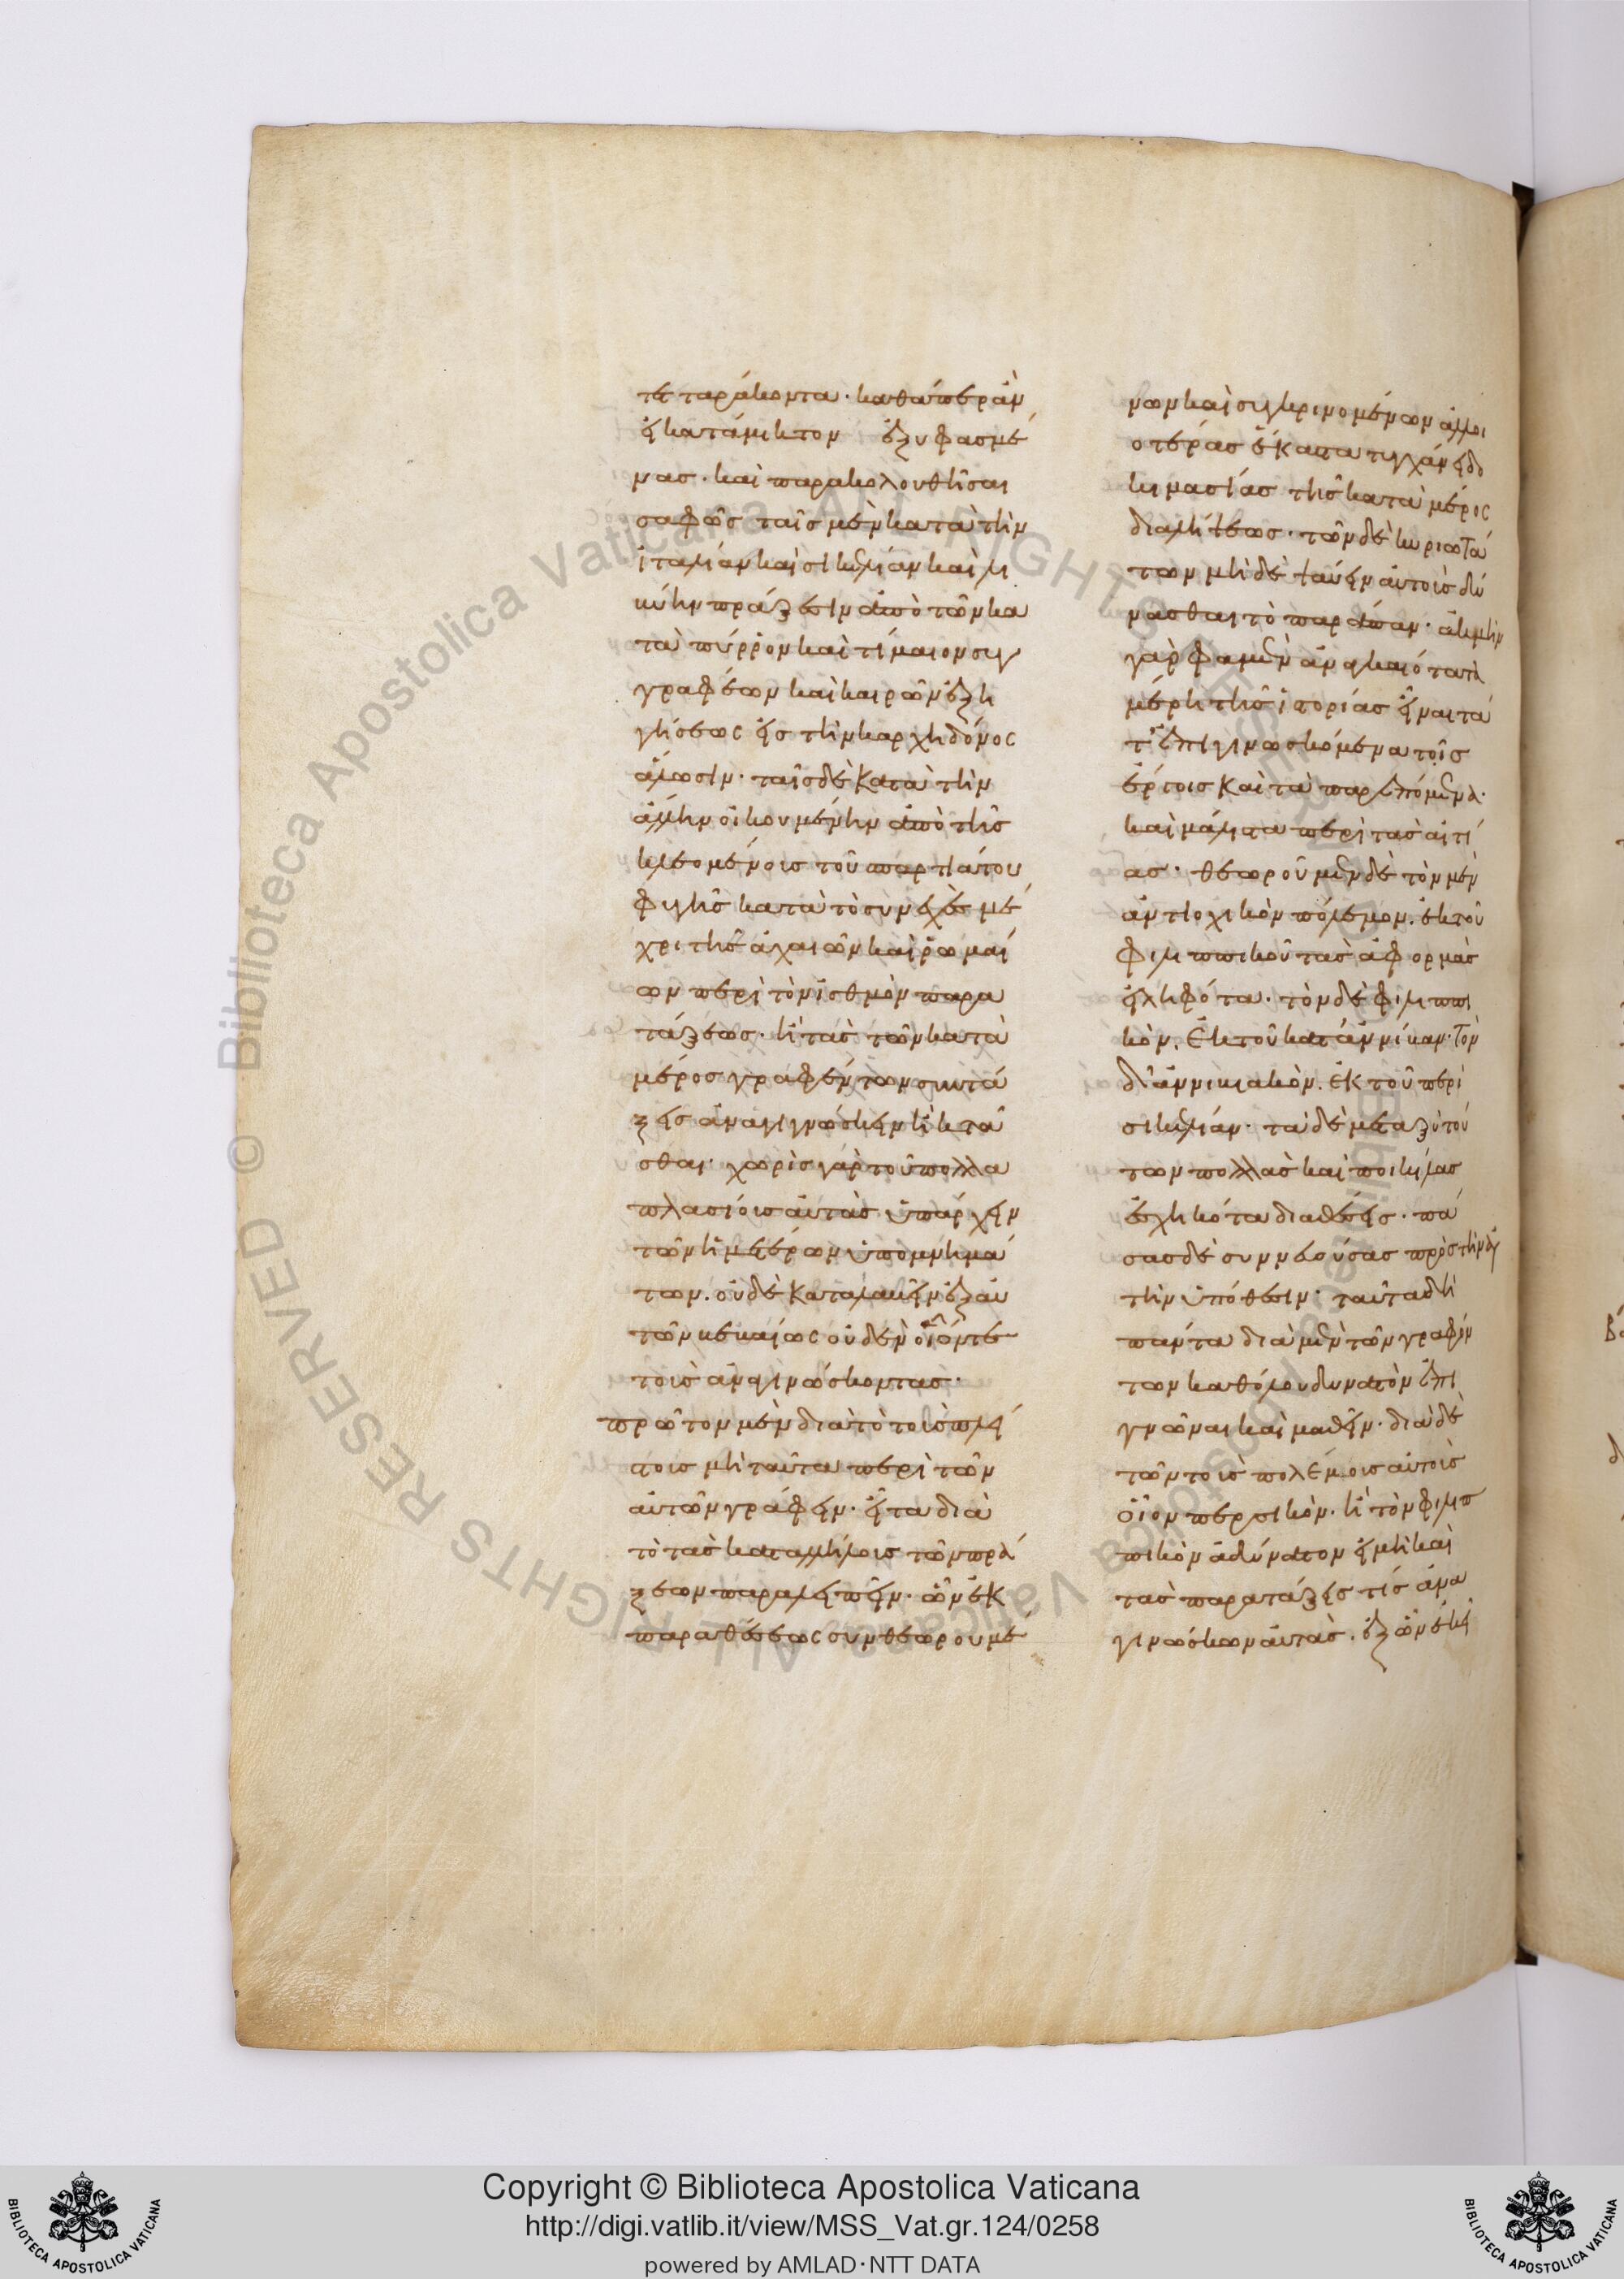 τετταράκοντα· καθαπερὰν
εἰ κατὰ μίτον ἐξυφασμέ
νας· καὶ παρακολουθῆσαι
σαφῶς ταῖς μὲν κατὰ τὴν
ἰταλίαν καὶ σικελίαν καὶ λι
βύην πράξεσιν ἀπὸ τῶν κα
τὰ πύρρον καὶ τίμαιον συγ
γραφέων καὶ καιρῶν ἐξη
γήσεως εἰς τὴν καρχηδόνος
ἅλωσιν· ταῖς δὲ κατὰ τὴν
ἄλλην οἰκουμένην ἀπὸ τῆς
κλεομένους τοῦ σπαρτιάτου
φυγῆς κατὰ τὸ συνεχὲς μέ
χρι τῆς ἀχαιῶν καὶ ῥωμαί
ων περὶ τὸν ἰσθμὸν παρα
τάξεως· ἢ τὰς τῶν κατὰ
μέρος γραφέντων συντά
ξεις ἀναγιγνώσκειν ἢ κτᾶ
σθαι· χωρὶς γὰρ τοῦ πολλα
πλασίους αὐτὰς ὑπάρχειν
τῶν ἡμετέρων ὑπομνημά
των· οὐδὲ καταλαβεῖν ἐξ αὐ
τῶν βεβαίως οὐδὲν οἷόν τε
τοὺς ἀναγινώσκοντας·
πρῶτον μὲν διὰ τὸ τοὺς πλεί
στους μὴ ταῦτα περὶ τῶν
αὐτῶν γράφειν· εἶτα διὰ
τὸ τὰς καταλλήλους τῶν πρά
ξεων παραλείπειν· ὧν ἐκ
παραθέσεως συνθεωρουμέ
νων καὶ συγκρινομένων ἀλλοι
οτέρας ἕκαστα τυγχάνει δο
κιμασίας τῆς κατὰ μέρος
διαλήψεως· τῶν δὲ κυριωτά
των μηδὲ ψαύειν αὐτοὺς δύ
νασθαι τὸ παράπαν· ἀκμὴν
γὰρ φαμὲν ἀναγκαιότατα
μέρη τῆς ἱστορίας εἶναι τά
τ' ἐπιγινωσκόμενα τοῖς
ἔργοις καὶ τὰ παρεπόμενα·
καὶ μάλιστα περὶ τὰς αἰτί
ας· θεωροῦμεν δὲ τὸν μὲν
ἀντιοχικὸν πόλεμον· ἐκ τοῦ
φιλιππικοῦ τὰς ἀφορμὰς
εἰληφότα· τὸν δὲ φιλιππι
κὸν· ἐκ τοῦ κατ' ἀννίβαν· τὸν
δ' ἀννιβιακὸν· ἐκ τοῦ περὶ
σικελίαν· τὰ δὲ μεταξὺ τού
των πολλὰς καὶ ποικίλας
ἐσχηκότα διαθέσεις· πά
σας δὲ συννευούσας πρὸς τὴν αὐ
τὴν ὑπόθεσιν· ταῦτα δὴ
πάντα διὰ μὲν τῶν γραφόν
των καθόλου δυνατὸν ἐπι
γνῶναι καὶ μαθεῖν· διὰ δὲ
τῶν τοὺς πολέμους αὐτοὺς
οἷον περσικὸν· ἢ τὸν φιλιπ
πικὸν ἀδύνατον εἰ μὴ καὶ
τὰς παρατάξεις τίς ἀνα
γινώσκων αὐτὰς· ἐξ ὧν ἐκεῖ